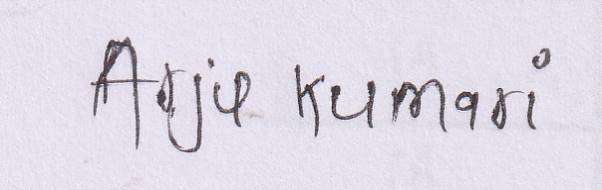 Arju Kumari